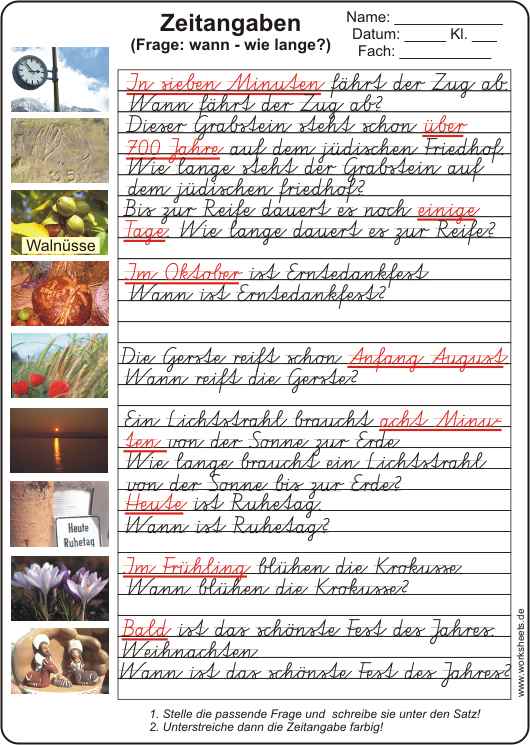 Zeitangaben
(Frage: wann - wie lange?)
Name: ______________
Datum: _____ Kl. ___
Fach: ____________
In sieben Minuten fährt der Zug ab.
Wann fährt der Zug ab?
Dieser Grabstein steht schon über
700 Jahre auf dem jüdischen Friedhof.
Wie lange steht der Grabstein auf
dem jüdischen friedhof?
Bis zur Reife dauert es noch einige
Tage. Wie lange dauert es zur Reife?
Walnüsse
Im Oktober ist Erntedankfest
Wann ist Erntedankfest?
Die Gerste reift schon Anfang August.
Wann reift die Gerste?
Ein Lichtstrahl braucht acht Minu-
ten von der Sonne zur Erde
Wie lange braucht ein Lichtstrahl
von der Sonne bis zur Erde?
Heute ist Ruhetag.
Wann ist Ruhetag?
Heute
Ruhetag
Im Frühling blühen die Krokusse
Wann blühen die Krokusse?
Bald ist das schönste Fest des Jahres.
Weihnachten
Wann ist das schönste Fest des Jahres?
www.worksheets.de
1. Stelle die passende Frage und schreibe sie unter den Satz!
2. Unterstreiche dann die Zeitangabe farbig!